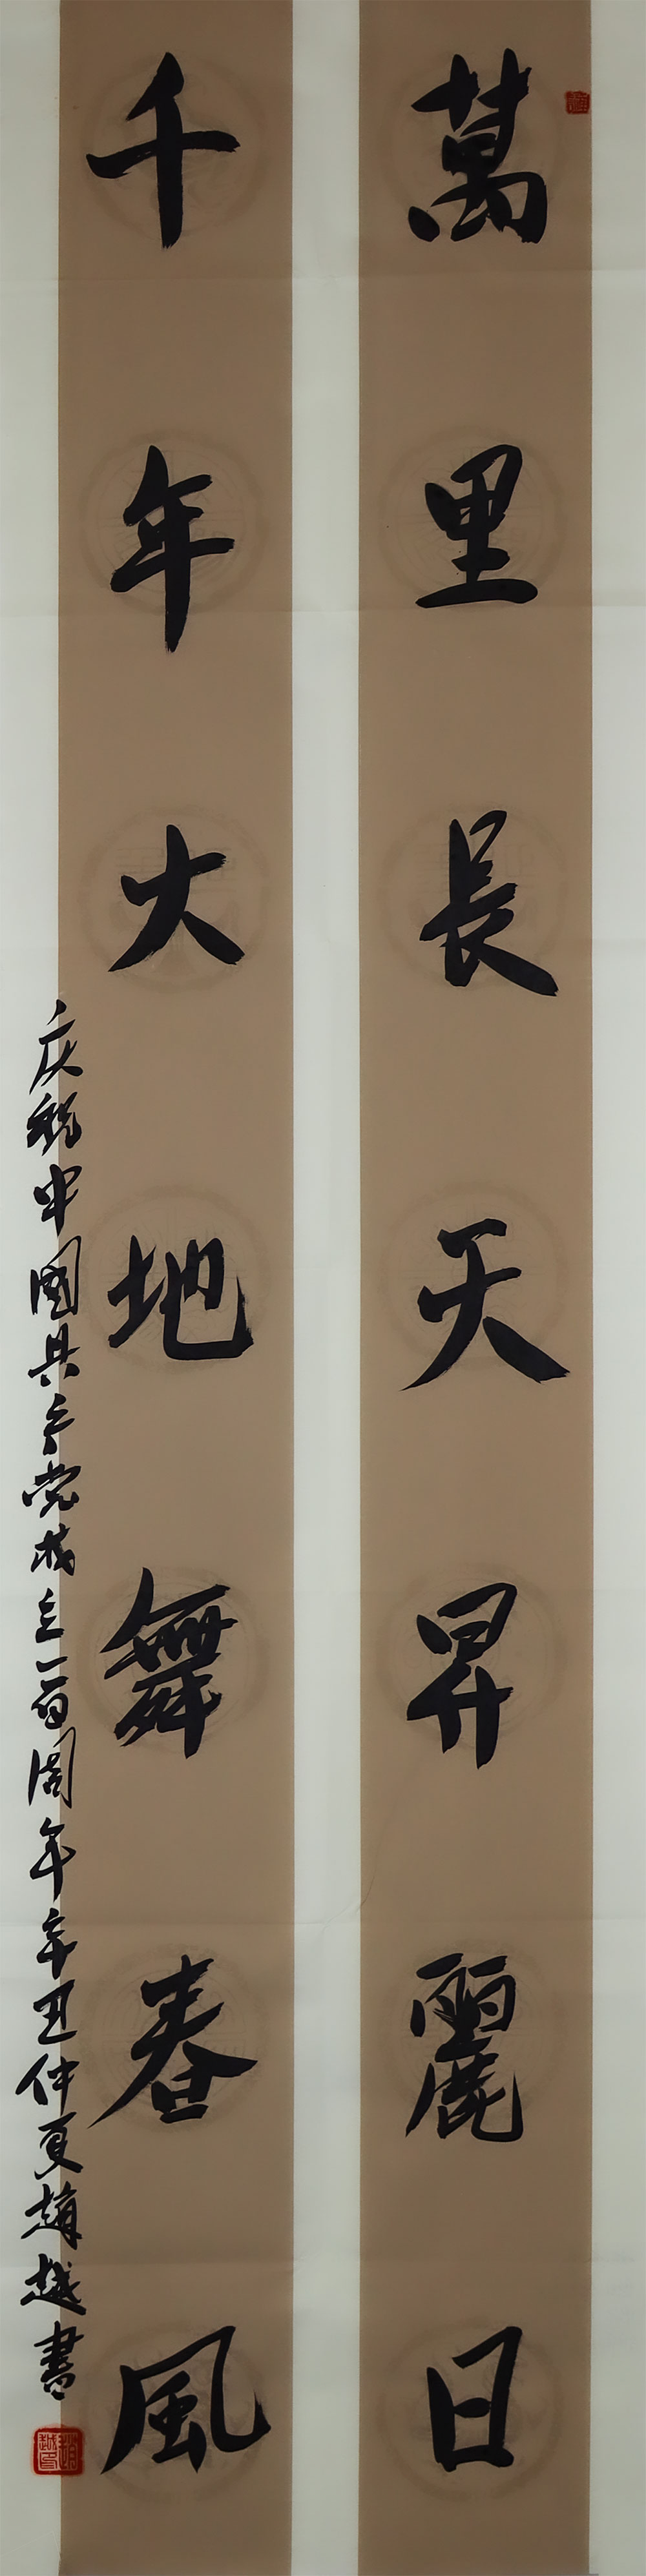 萬里長天昇麗日
千年大地舞春風
庆祝中國共产党成立一百周年辛丑仲夏趙越書